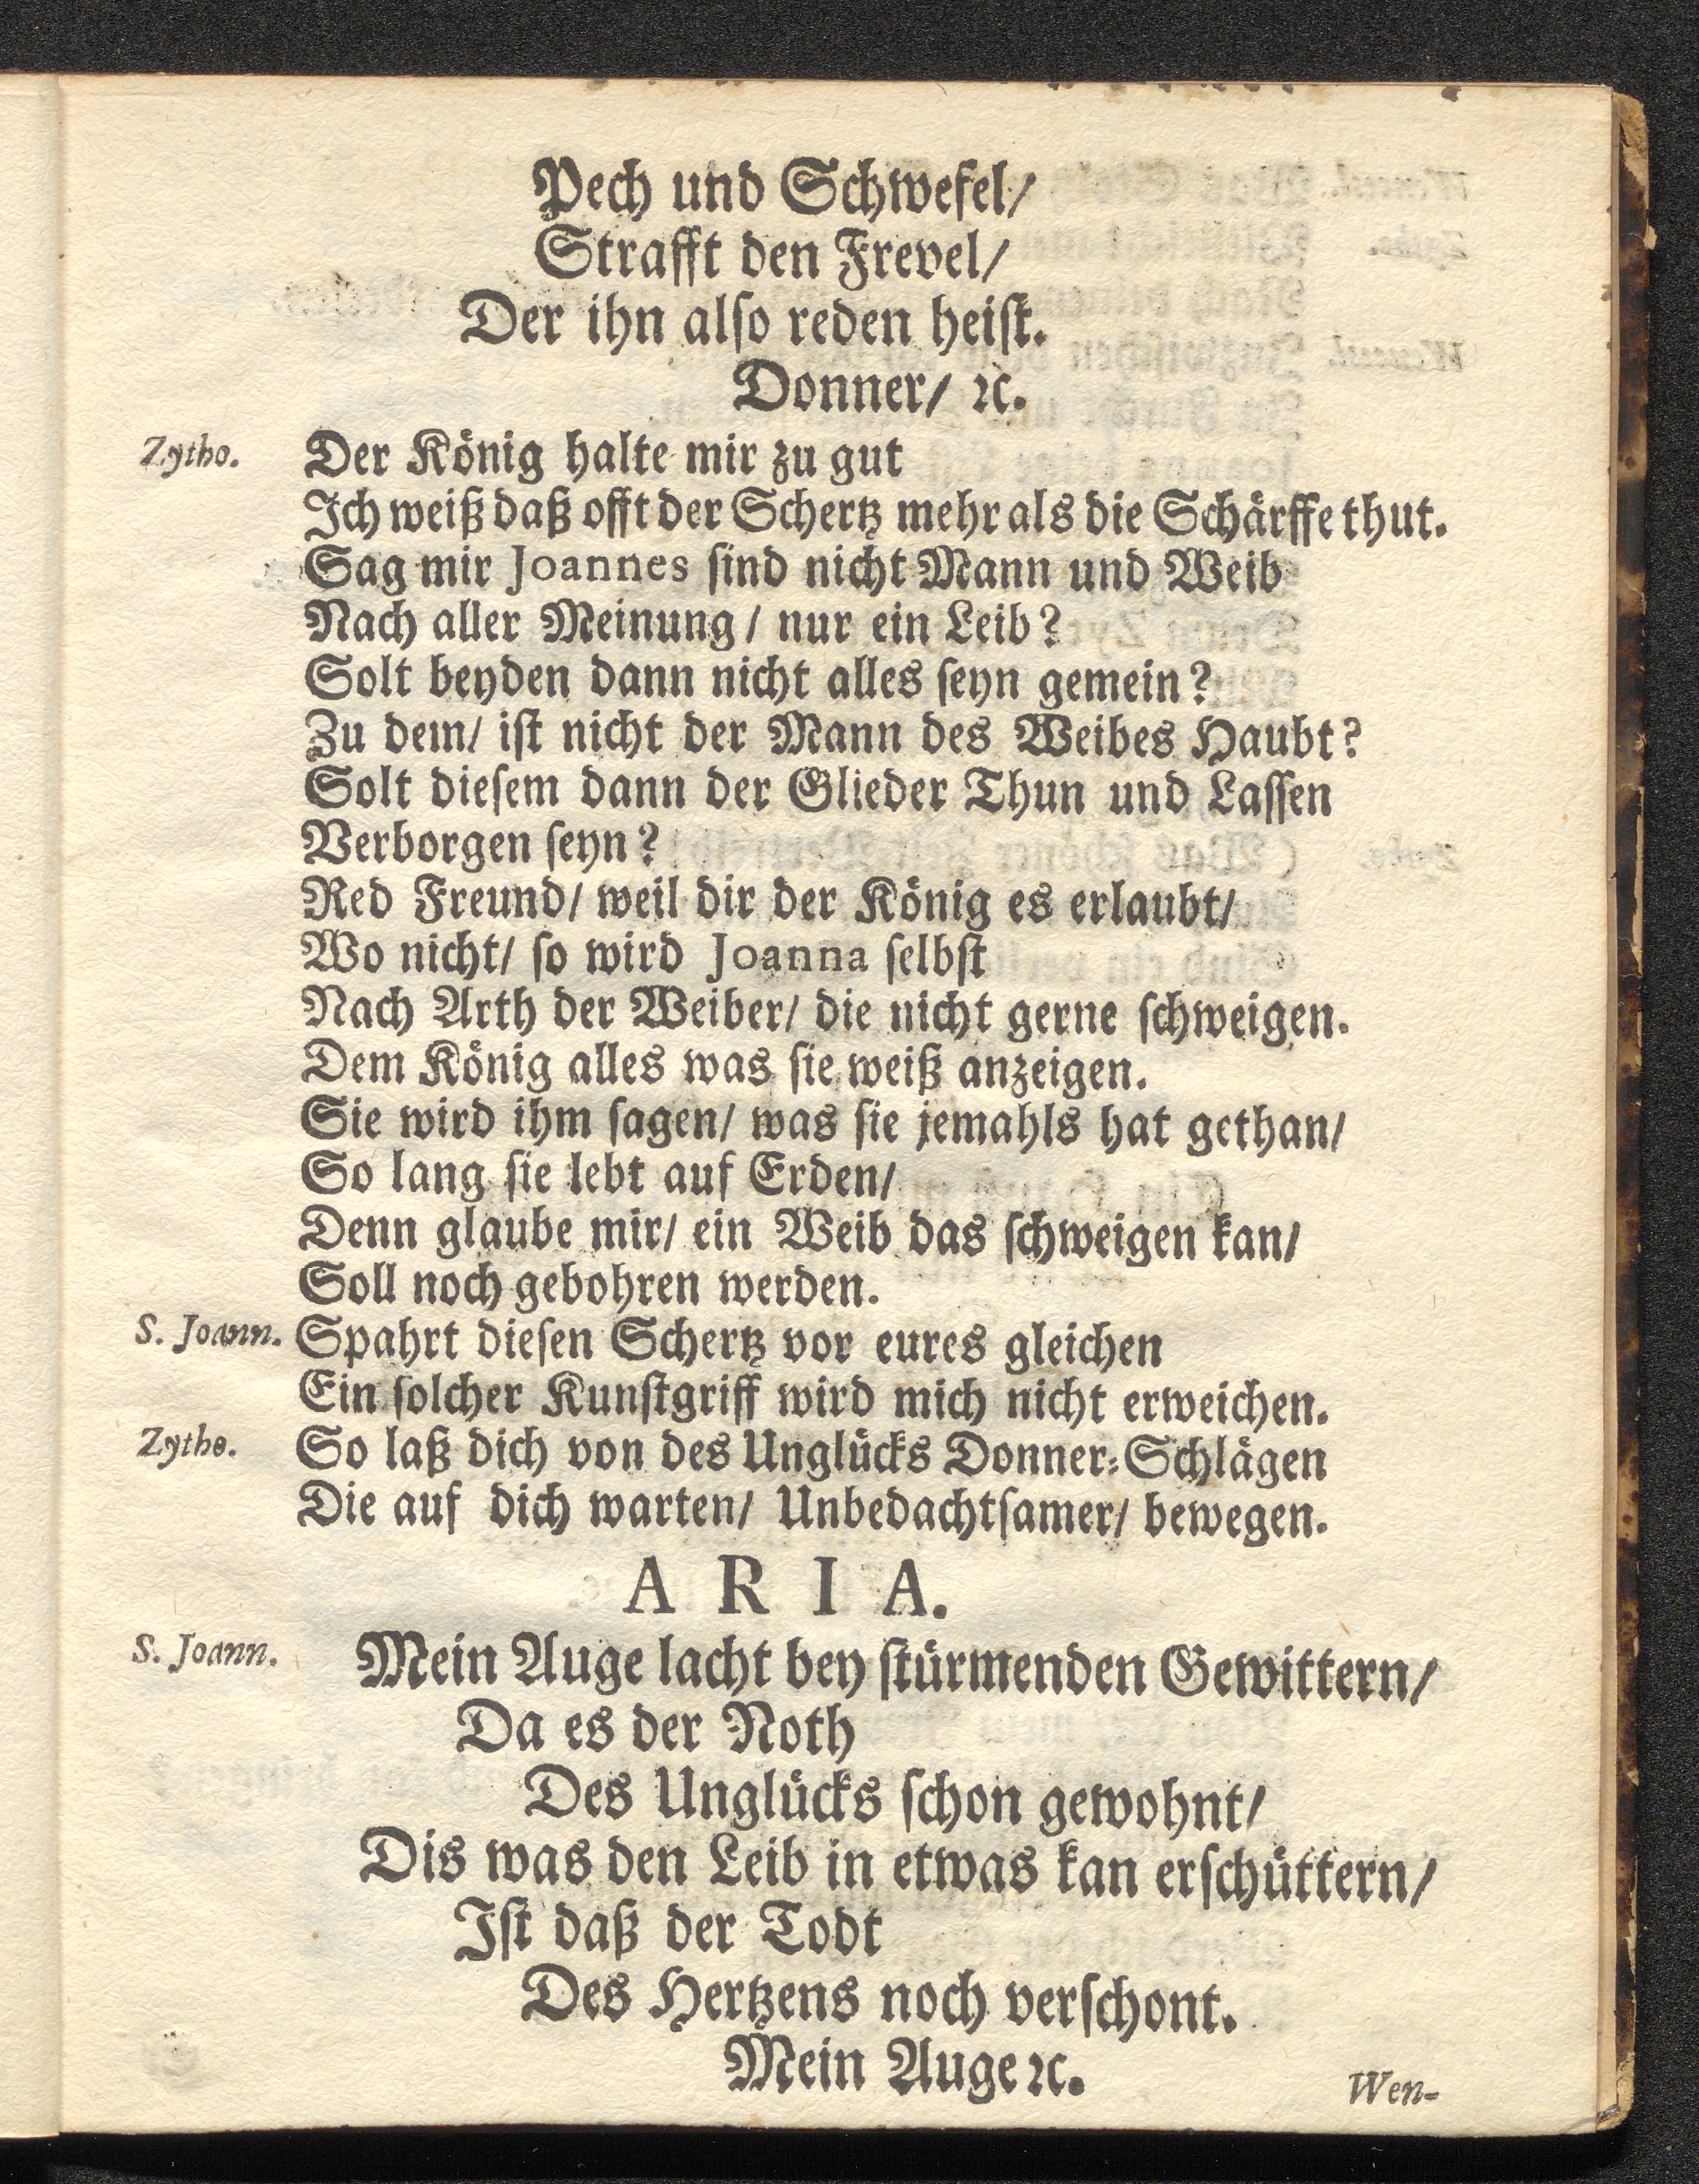 Pech und Schwefel/
Strafft den Frevel/
Der ihn alſo reden heiſt.
Donner/ ꝛc.
Zytho. Der König halte mir zu gut
Ich weiß daß offt der Schertz mehr als die Schärffe thut.
Sag mir Joannes ſind nicht Mann und Weib
Nach aller Meinung/ nur ein Leib?
Solt beyden dann nicht alles ſeyn gemein?
Zu dem/ iſt nicht der Mann des Weibes Haubt?
Solt dieſem dann der Glieder Thun und Laſſen
Verborgen ſeyn?
Red Freund/ weil dir der König es erlaubt/
Wo nicht/ ſo wird Joanna ſelbſt
Nach Arth der Weiber/ die nicht gerne ſchweigen.
Dem König alles was ſie weiß anzeigen.
Sie wird ihm ſagen/ was ſie jemahls hat gethan/
So lang ſie lebt auf Erden/
Denn glaube mir/ ein Weib das ſchweigen kan/
Soll noch gebohren werden.
S. Joann. Spahrt dieſen Schertz vor eures gleichen
Ein ſolcher Kunſtgriff wird mich nicht erweichen.
Zytho. So laß dich von des Unglücks Donner-Schlägen
Die auf dich warten/ Unbedachtſamer/ bewegen.
A R I A.
S. Joann. Mein Auge lacht bey ſtürmenden Gewittern/
Da es der Noth
Des Unglücks ſchon gewohnt/
Dis was den Leib in etwas kan erſchüttern/
Iſt daß der Todt
Des Hertzens noch verſchont.
Mein Auge ꝛc.
Wen-